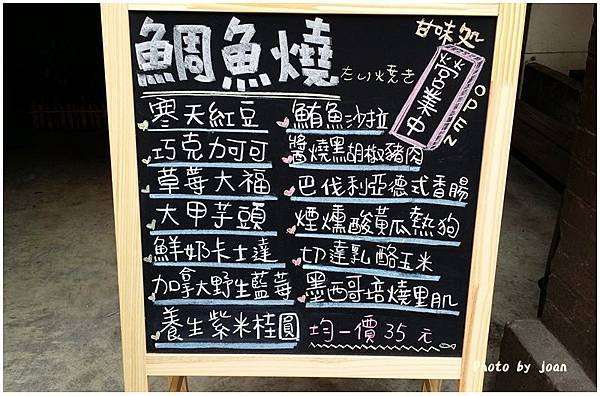 鯛魚燒
たい焼き
甘味処
營業中
OPEN
寒天紅豆
巧克力可可
草莓大福
大甲芋頭
鮮奶卡士達
加拿大野生藍莓
養生紫米桂圓
鮪魚沙拉
醬燒黑胡椒豬肉
巴伐利亞德式香腸
煙燻酸黃瓜熱狗
切達乳酪玉米
墨西哥培燒里肌
均一價35元
Photo by Joan